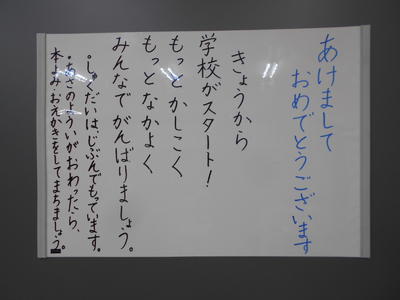 あけまして
おめでとうございます
きょうから
学校がスタート!
もっとかしこく
もっとなかよく
みんなでがんばりましょう。
・しゅくだいは、じぶんでもっています。
・あさのよういがおわったら、
本よみ・おえかきをしてまちましょう。